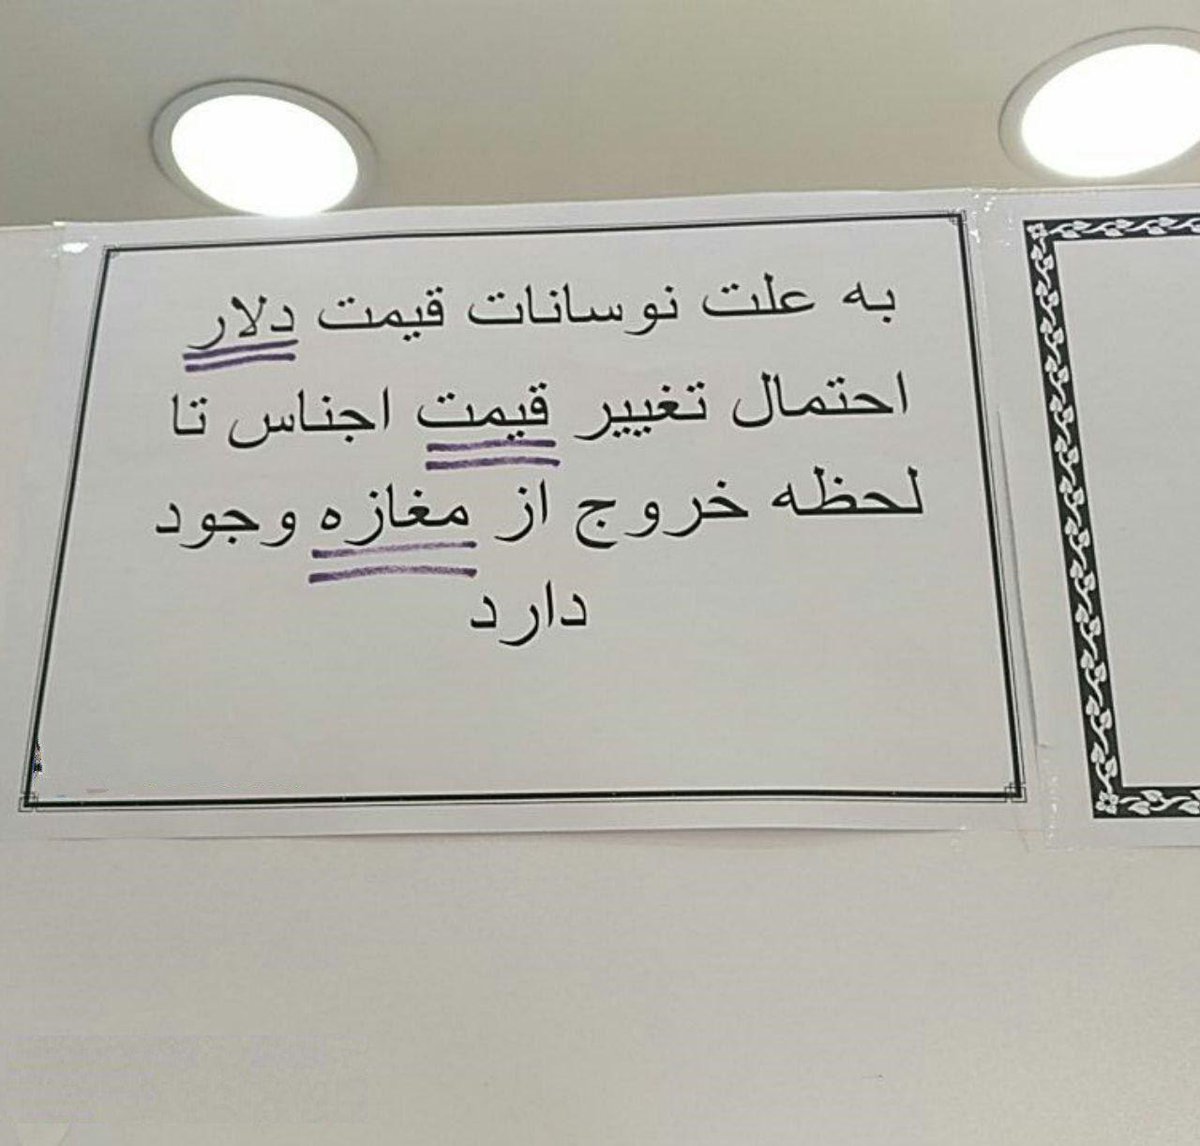 به علت نوسانات قیمت دلار
احتمال تغییر قیمت اجناس تا
لحظه خروج از مغازه وجود
دارد